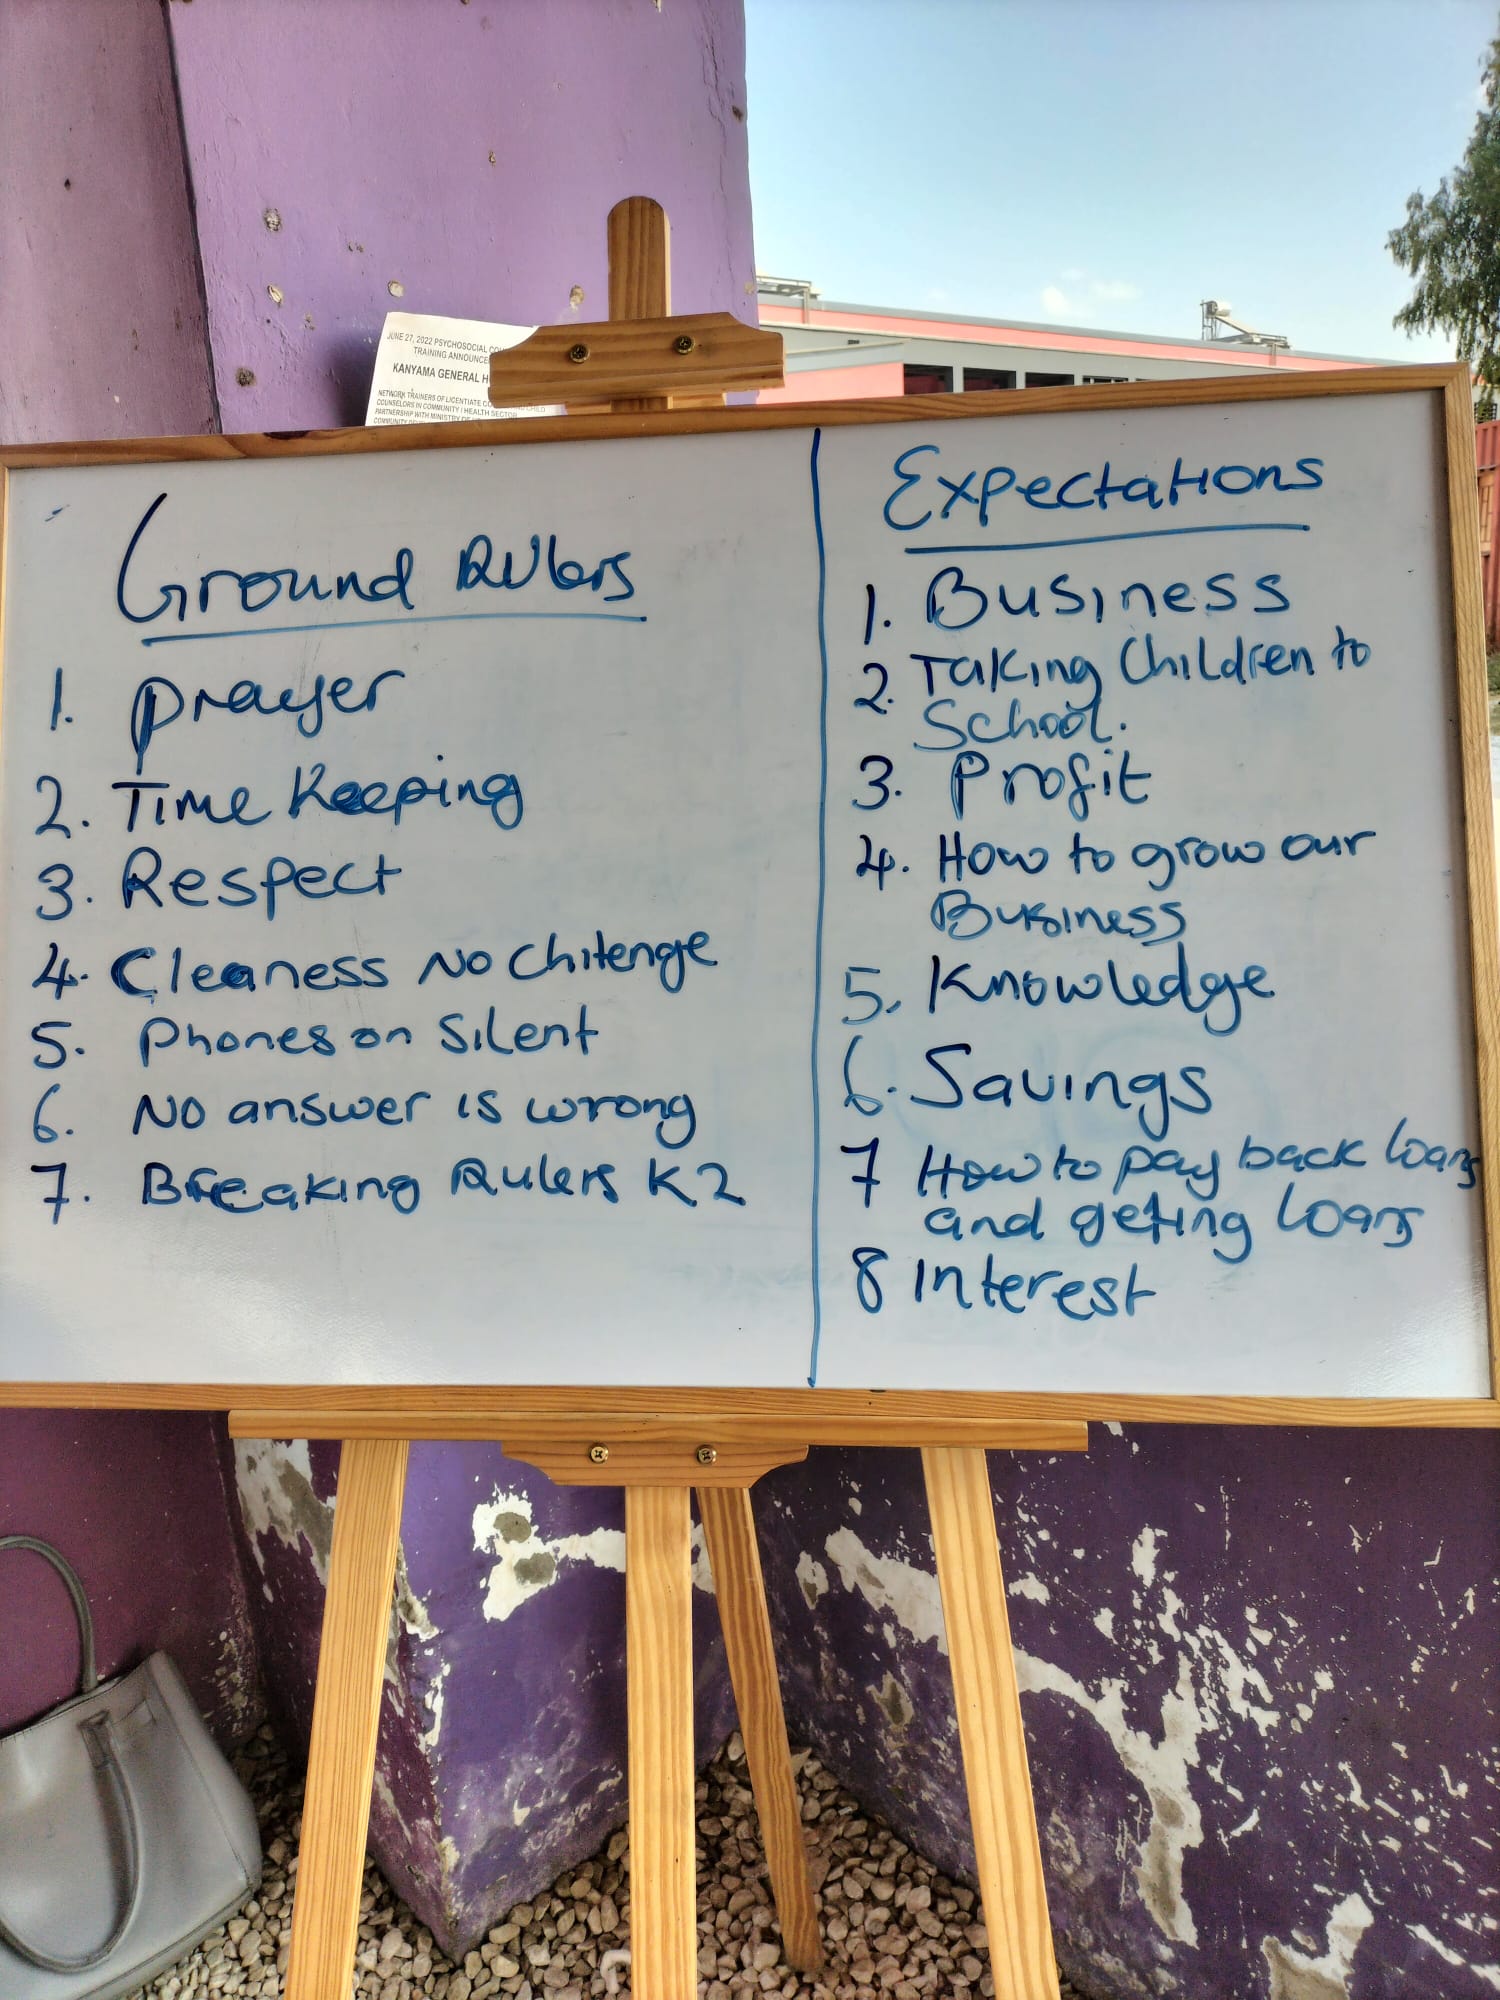 JUNE 27, 2022 PSYCHOSOCIAL
TRAINING
KANYAMA GENERAL
NETWORK TRAINERS OF LICENTIATE CHILD
COUNSELORS IN COMMUNITY / HEALTH SECTOR
PARTNERSHIP WITH MINISTRY
Ground Rulers
1. Prayer
2. Time Keeping
3. Respect
4. Cleaness No Chitenge
5. Phones on Silent
6. No answer is wrong
7. Breaking Rulers K2
Expectations
1. Business
2. Taking Children to
School.
3. Profit
4. How to grow our
Business
5. Knowledge
6. Savings
7 How to pay back loans
and geting loans
8 Interest